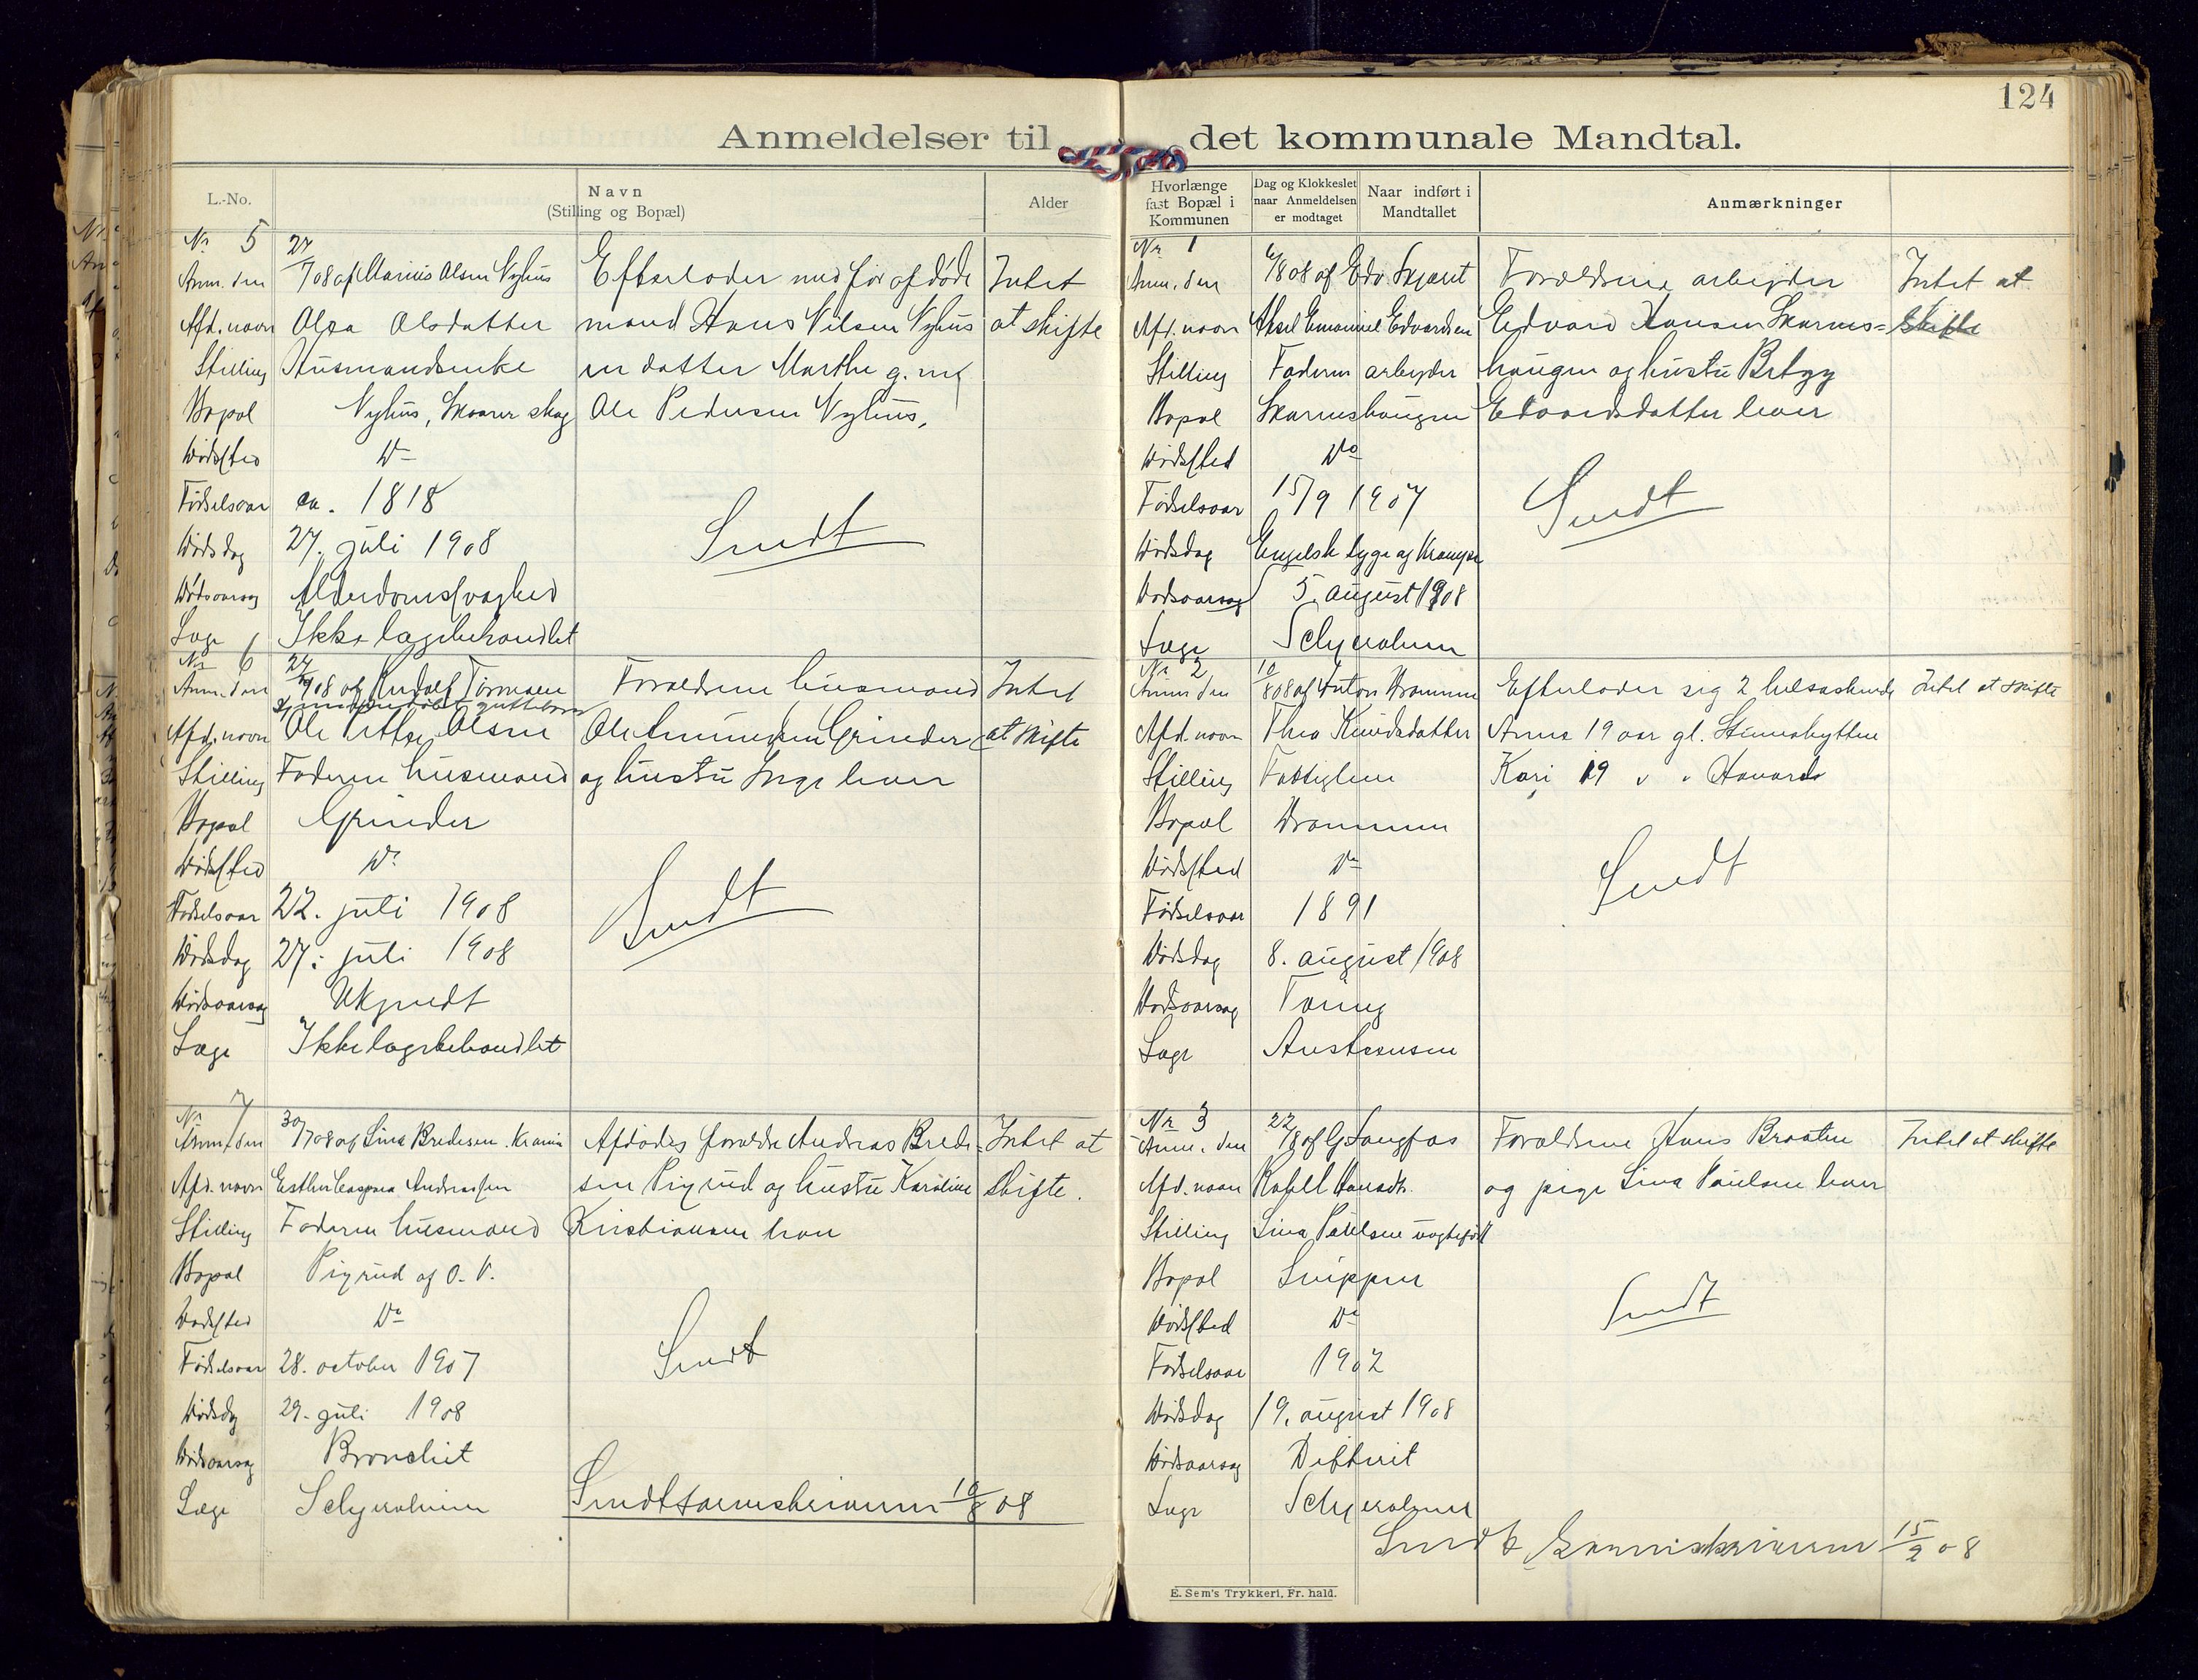 124
Anmeldelser til det kommunale Mandtal.
L.-No.
Navn
(Stilling og Bopæl)
Alder
Nr 5
Anm. den 27/7 08 af Marius Olsen Nyhus
Afd. navn Olea Olsdatter
Stilling Husmandsenke
Bopæl Nyhus, Skaarer skog
Dødssted Do
Fødselsaar ca. 1818
Dødsdag 27. juli 1908
Dødsaarsag Alderdomssvaghed
Læge Ikke lægebehandlet
Efterlader med før afdøde
mand Hans Nilsen Nyhus
en datter Marthe g. m/
Ole Pedersen Nyhus,
Sendt
Intet
at skifte
Nr 6
Anm. den 27/7 08 af Rudolf
Afd. navn Ole Olsen
Stilling Faderen husmand
Bopæl Grinder
Dødssted Do
Fødselsaar 22. juli 1908
Dødsdag 27. juli 1908
Dødsaarsag Ukjendt
Læge Ikke lægebehandlet
Forældrene husmand
Ole Amundsen Grinder
og hustru Inga lever
Sendt
Intet
at skifte
Nr 7
Anm. den 30/7 08 af Lina Bredesen
Afd. navn Esther Caspara Andreassen
Stilling Faderen husmand
Bopæl Pigrud af O. V.
Dødssted Do
Fødselsaar 28. october 1907
Dødsdag 29. juli 1908
Dødsaarsag Bronchit
Læge Schjerholm
Afdødes forældre Andreas Brede-
sen Pigrud og hustru Karoline
Kristiansen
Sendt
Intet at
skifte.
Sendt sorenskriveren 10/8 08
Hvorlænge
fast Bopæl i
Kommunen
Dag og Klokkeslet
naar Anmeldelsen
er modtaget
Naar indført i
Mandtallet
Anmærkninger
Nr 1
Anm. den 6/8 08 af Edv.
Afd. navn Aksel Emanuel Edvardsen
Stilling Faderen arbeyder
Bopæl Skarneshaugen
Dødssted Do
Fødselsaar 15/9 1907
Dødsdag Engelsk syge og Krampe
Dødsaarsag 5. august 1908
Læge Schjerholm
Forældrene arbeyder
Edvard Hansen Skarnes=
haugen og hustru Betzy
Edvardsdatter lever
Sendt
Intet at
skifte
Nr 2
Anm. den 10/8 08 af Anton Drammen
Afd. navn Thea Knudsdatter
Stilling Fattiglem
Bopæl Drammen
Dødssted Do
Fødselsaar 1891
Dødsdag 8. august 1908
Dødsaarsag Tæring
Læge
Efterlader sig 2 helsøskende
Anna 19 aar gl.
Kari 19 " "
Sendt
Intet at skifte
Nr 3
Anm. den 22/8 af G. Langfos
Afd. navn Hansdt.
Stilling Lina Paulsen uægtefødt
Bopæl
Dødssted Do
Fødselsaar 1902
Dødsdag 19. august 1908
Dødsaarsag Difterit
Læge Schjerholm
Forældrene Hans Braaten
og pige Lina Paulsen lever
Sendt
Intet at skifte
Sendt Sorenskriveren 15/9 08
E. Sem's Trykkeri, Fr. hald.